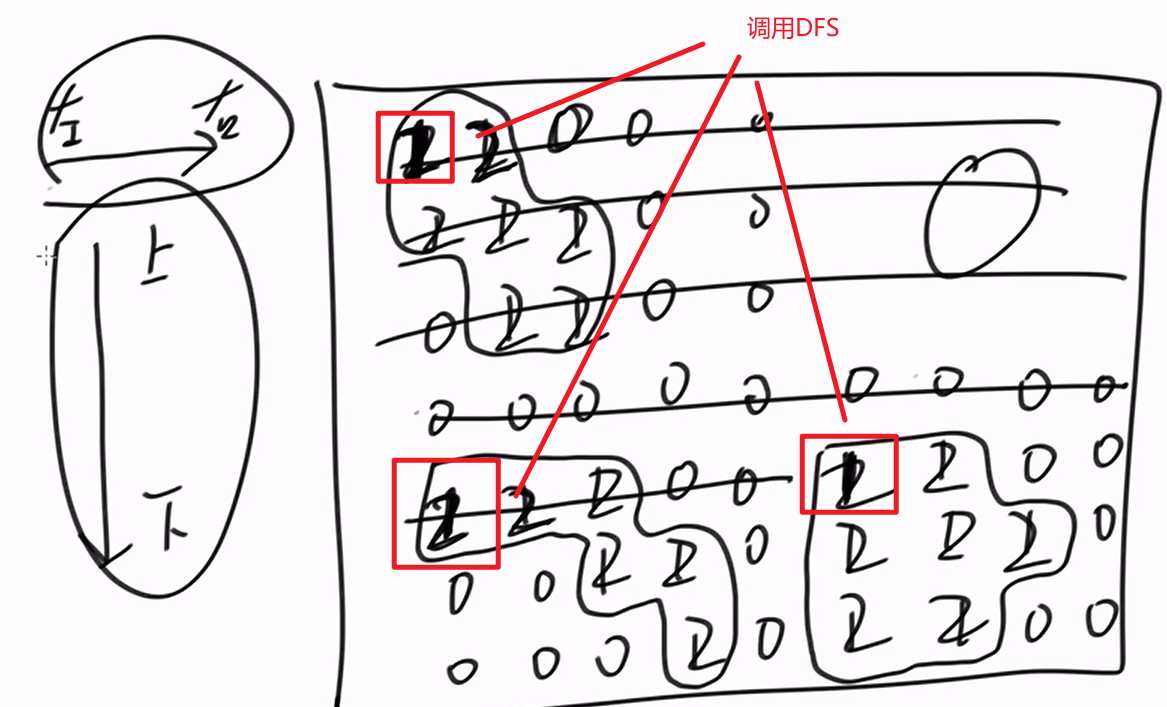 调用DFS
2 2 0 0 0
2 2 2 0 0
0 2 2 0 0
上
0 0 0 0 0 0 0 0 0
2 2 2 0 0 2 2 0 0
下
0 0 2 2 0 2 2 2 0
0 0 0 2 0 2 2 0 0